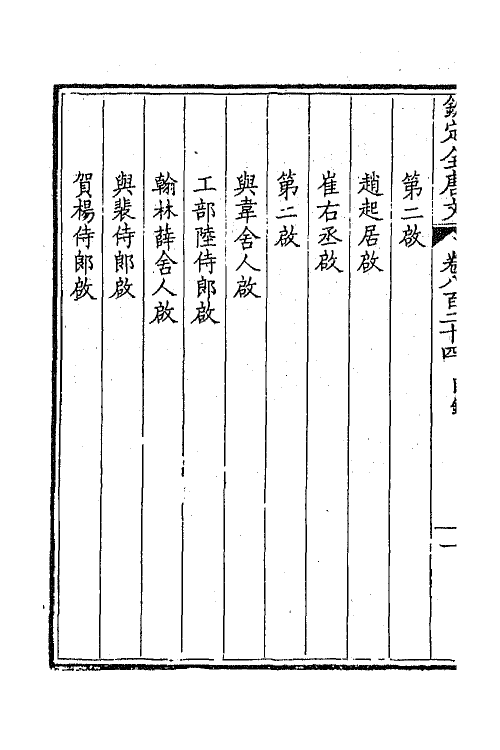 欽定全唐文 卷八百二十四 目錄 一
第二啟
趙起居啟
崔右丞啟
第二啟
與韋舍人啟
工部陸侍郎啟
翰林薛舍人啟
與裴侍郎啟
賀楊侍郎啟